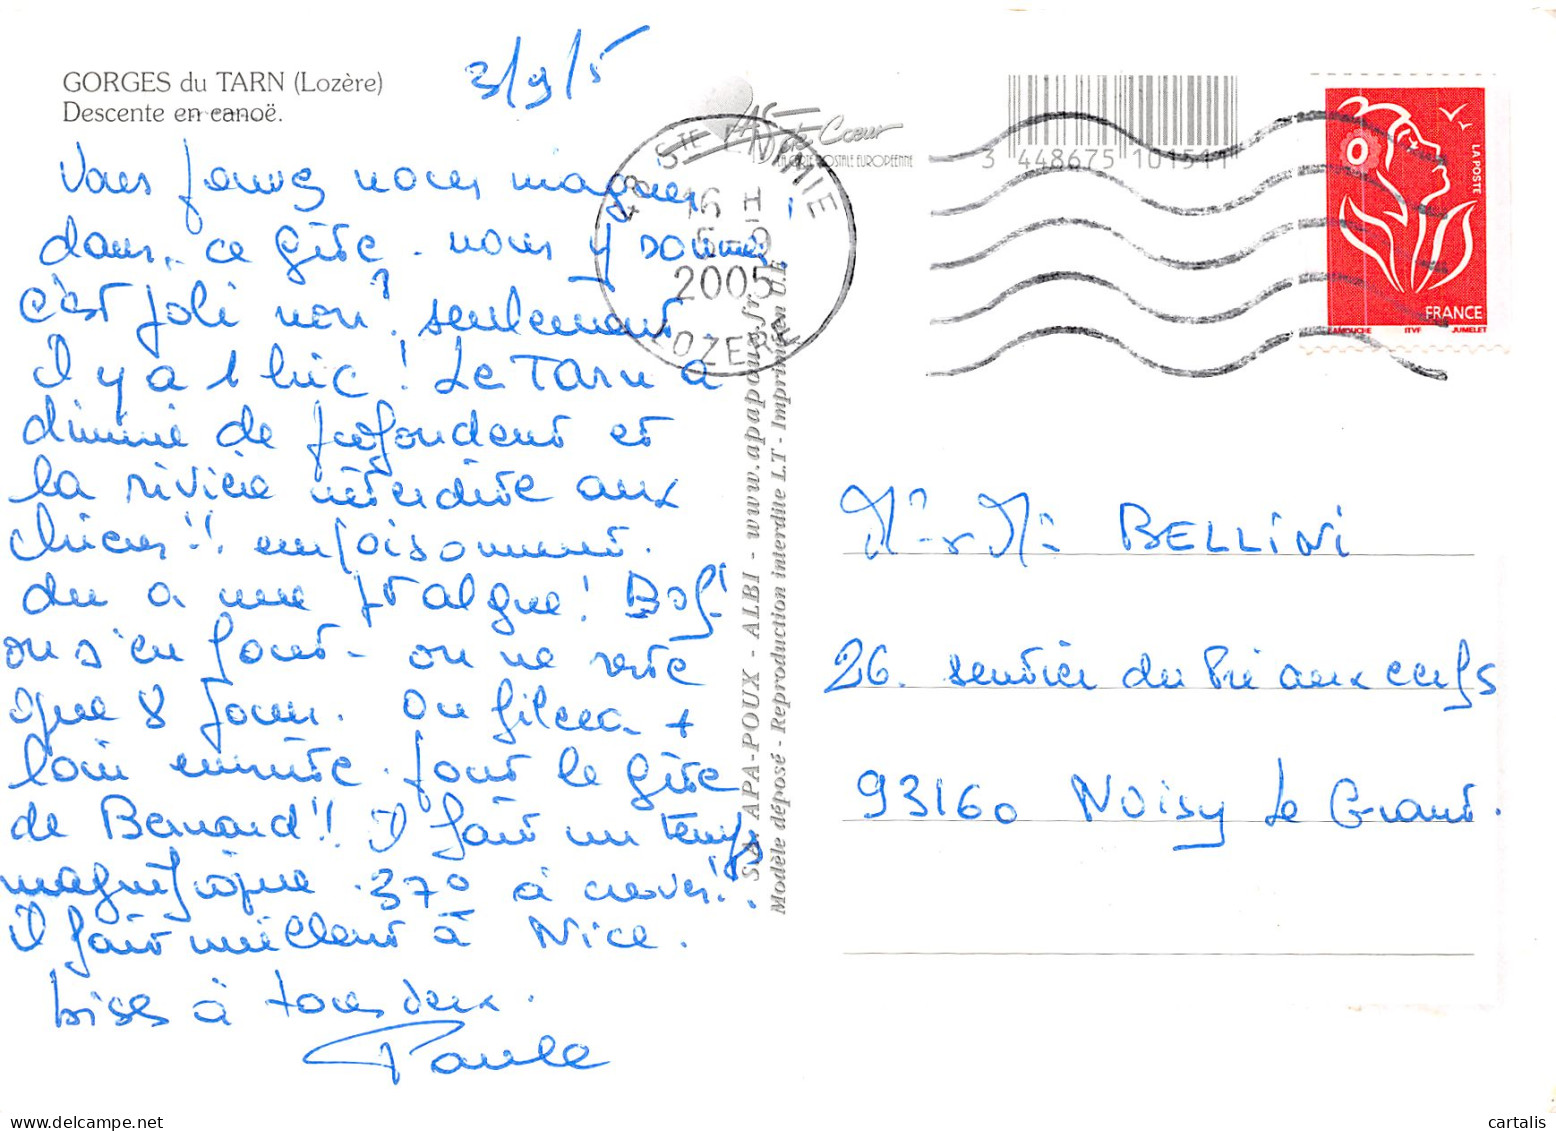 GORGES du TARN (Lozère)
Descente en canoë.
3/9/5
Vous pouvez nous imaginer
dans ce gîte. nous y sommes.
c'est joli non? seulement
il y a 1 hic! Le Tarn a
diminué de profondeur et
la rivière interdite aux
chiens!! empoisonnement
du a une pt algue! Bof!
on s'en fout - on ne reste
que 8 jours. On filera +
loin ensuite. pour le gîte
de Bernard!! il fait un temps
magnifique. 37° à crever!!
il fait meilleur à Nice.
bises à tous deux.
Paule
Carte Cœur
LA CARTE POSTALE EUROPÉENNE
3 448675 101511
48 STE ENIMIE
16 H
5-9
2005
LOZERE
LA POSTE
FRANCE
LAMOUCHE ITVF JUMELET
S.A. APA-POUX - ALBI - www.apapoux.fr
Modèle déposé - Reproduction interdite LT - Imprimé en U.E
Mr & Me BELLINI
26. sentier du Pré aux cerfs
93160 Noisy Le Grand.
cartalis